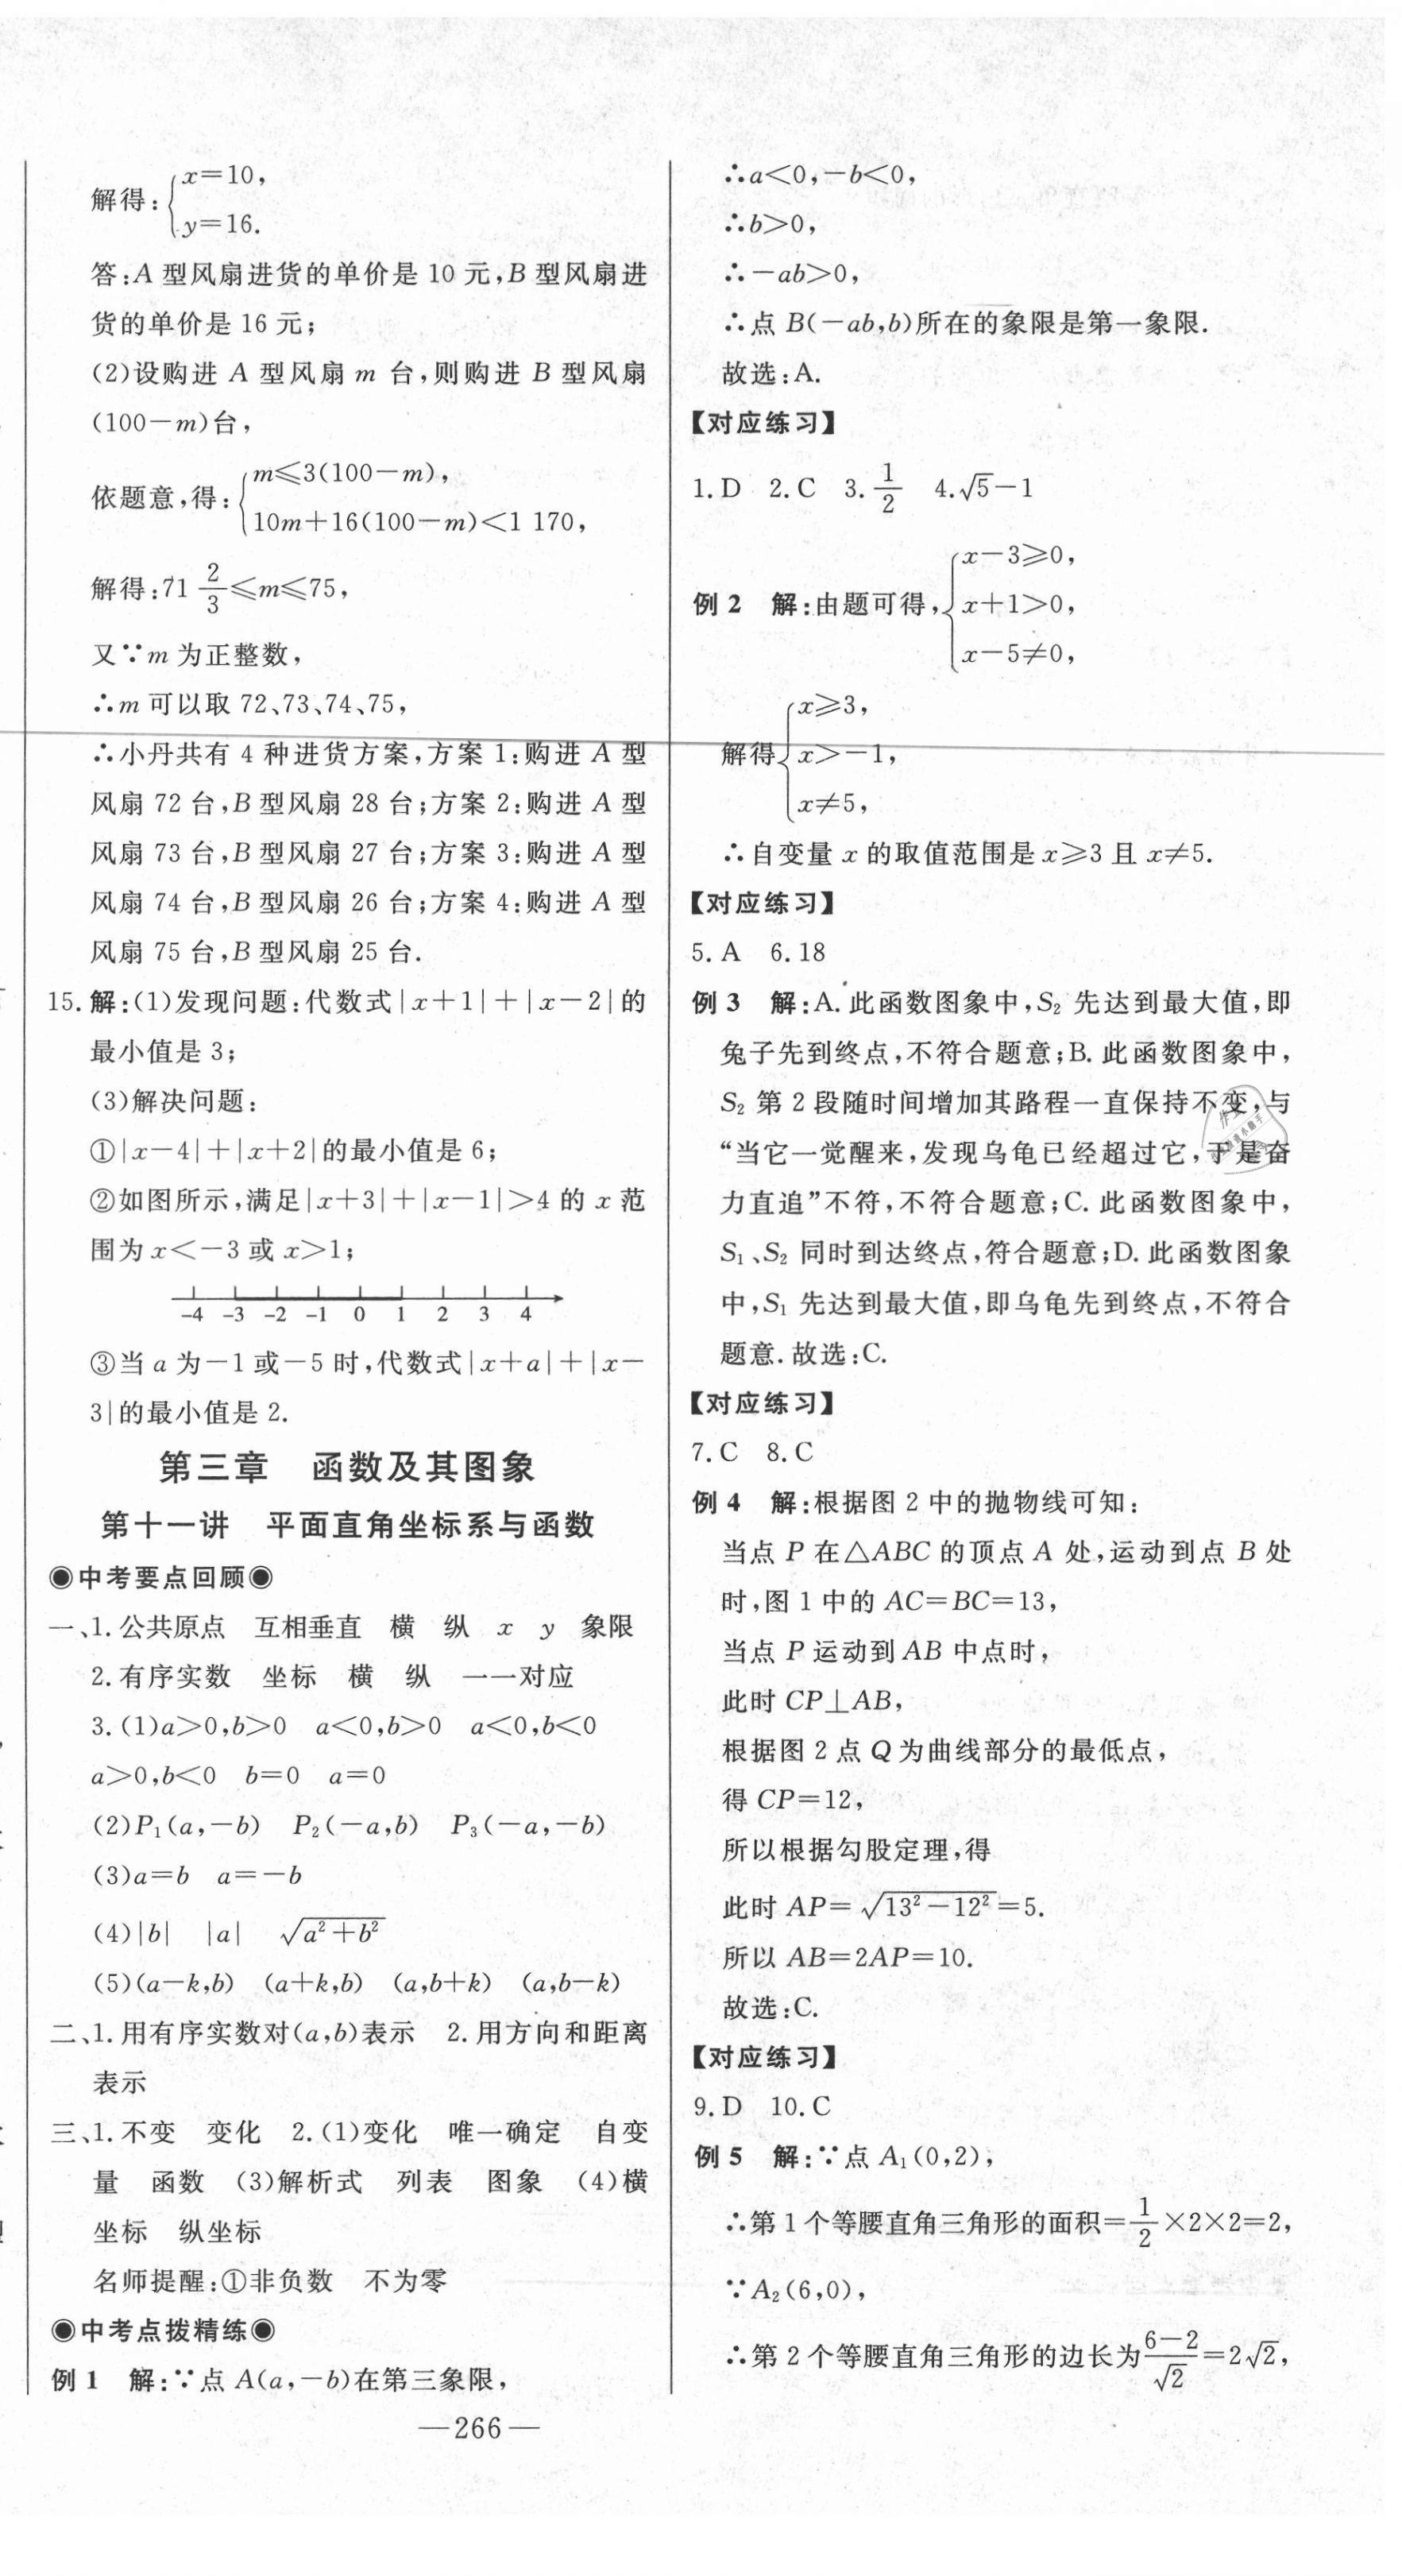 解得:{x=10,
y=16.
答:A 型风扇进货的单价是 10 元,B 型风扇进
货的单价是 16 元;
(2)设购进 A 型风扇 m 台,则购进 B 型风扇
(100-m)台,
依题意,得:{m≤3(100-m),
10m+16(100-m)<1 170,
解得:71 2/3≤m≤75,
又∵m 为正整数,
∴m 可以取 72、73、74、75,
∴小丹共有 4 种进货方案,方案 1:购进 A 型
风扇 72 台,B 型风扇 28 台;方案 2:购进 A 型
风扇 73 台,B 型风扇 27 台;方案 3:购进 A 型
风扇 74 台,B 型风扇 26 台;方案 4:购进 A 型
风扇 75 台,B 型风扇 25 台.
15.解:(1)发现问题:代数式|x+1|+|x-2|的
最小值是 3;
(3)解决问题:
①|x-4|+|x+2|的最小值是 6;
②如图所示,满足|x+3|+|x-1|>4 的 x 范
围为 x<-3 或 x>1;
-4 -3 -2 -1 0 1 2 3 4
③当 a 为-1 或-5 时,代数式|x+a|+|x-
3|的最小值是 2.
第三章 函数及其图象
第十一讲 平面直角坐标系与函数
◉中考要点回顾◉
一、1.公共原点 互相垂直 横 纵 x y 象限
2.有序实数 坐标 横 纵 一一对应
3.(1)a>0,b>0 a<0,b>0 a<0,b<0
a>0,b<0 b=0 a=0
(2)P₁(a,-b) P₂(-a,b) P₃(-a,-b)
(3)a=b a=-b
(4)|b| |a| √(a²+b²)
(5)(a-k,b) (a+k,b) (a,b+k) (a,b-k)
二、1.用有序实数对(a,b)表示 2.用方向和距离
表示
三、1.不变 变化 2.(1)变化 唯一确定 自变
量 函数 (3)解析式 列表 图象 (4)横
坐标 纵坐标
名师提醒:①非负数 不为零
◉中考点拨精练◉
例 1 解:∵点 A(a,-b)在第三象限,
∴a<0,-b<0,
∴b>0,
∴-ab>0,
∴点 B(-ab,b)所在的象限是第一象限.
故选:A.
【对应练习】
1.D 2.C 3.1/2 4.√5-1
例 2 解:由题可得,{x-3≥0,
x+1>0,
x-5≠0,
解得{x≥3,
x>-1,
x≠5,
∴自变量 x 的取值范围是 x≥3 且 x≠5.
【对应练习】
5.A 6.18
例 3 解:A.此函数图象中,S₂ 先达到最大值,即
兔子先到终点,不符合题意;B.此函数图象中,
S₂ 第 2 段随时间增加其路程一直保持不变,与
“当它一觉醒来,发现乌龟已经超过它,于是奋
力直追”不符,不符合题意;C.此函数图象中,
S₁、S₂ 同时到达终点,符合题意;D.此函数图象
中,S₁ 先达到最大值,即乌龟先到终点,不符合
题意.故选:C.
【对应练习】
7.C 8.C
例 4 解:根据图 2 中的抛物线可知:
当点 P 在△ABC 的顶点 A 处,运动到点 B 处
时,图 1 中的 AC=BC=13,
当点 P 运动到 AB 中点时,
此时 CP⊥AB,
根据图 2 点 Q 为曲线部分的最低点,
得 CP=12,
所以根据勾股定理,得
此时 AP=√(13²-12²)=5.
所以 AB=2AP=10.
故选:C.
【对应练习】
9.D 10.C
例 5 解:∵点 A₁(0,2),
∴第 1 个等腰直角三角形的面积=1/2×2×2=2,
∵A₂(6,0),
∴第 2 个等腰直角三角形的边长为(6-2)/√2=2√2,
—266—